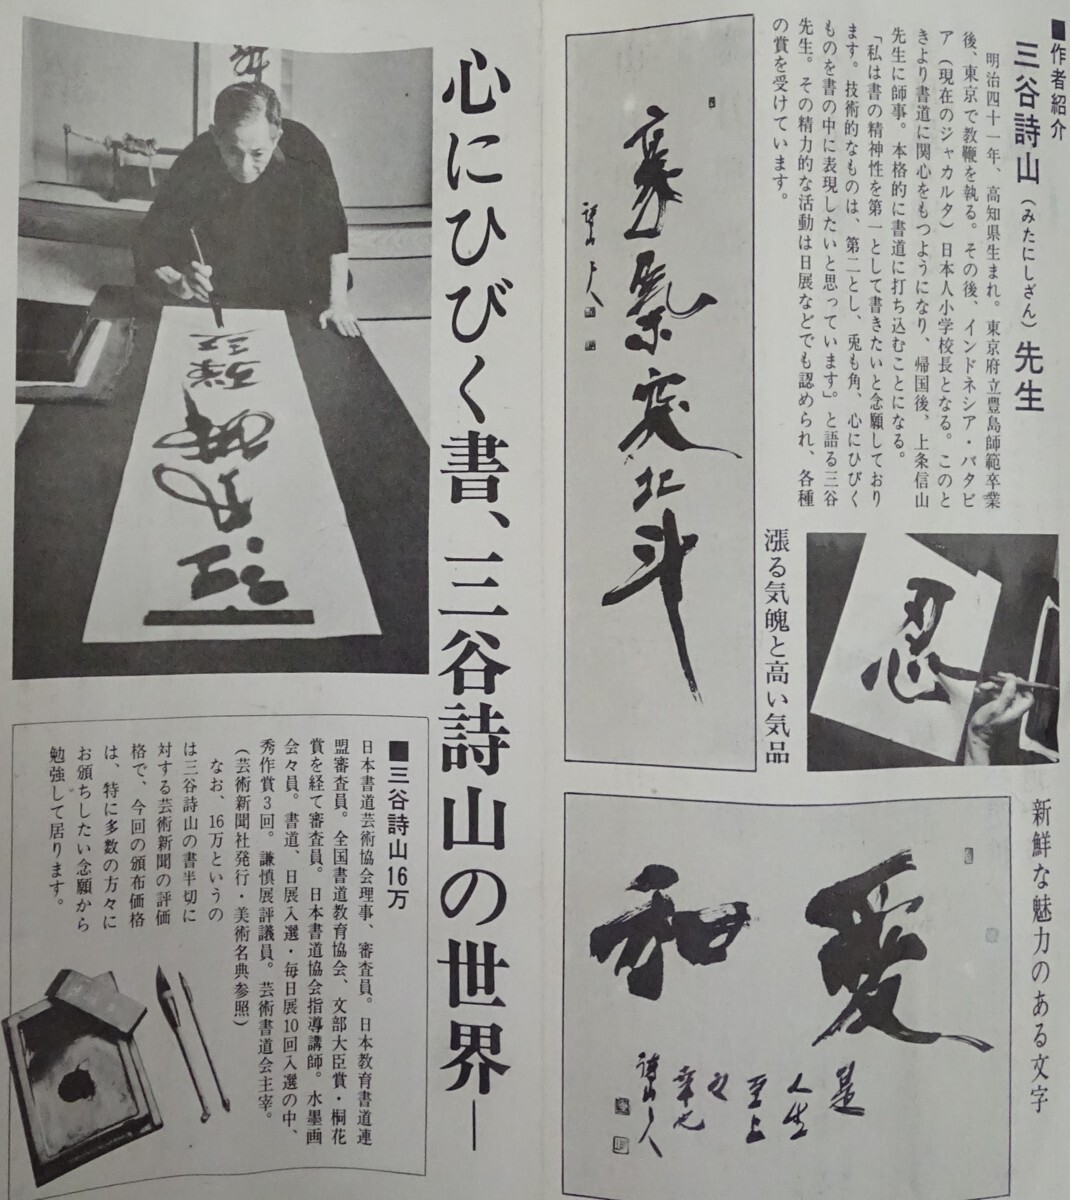 ■作者紹介
三谷詩山(みたにしざん)先生
明治四十一年、高知県生まれ。東京府立豊島師範卒業
後、東京で教鞭を執る。その後、インドネシア・バタビ
ア(現在のジャカルタ)日本人小学校長となる。このと
きより書道に関心をもつようになり、帰国後、上条信山
先生に師事。本格的に書道に打ち込むことになる。
「私は書の精神性を第一として書きたいと念願しており
ます。技術的なものは、第二とし、兎も角、心にひびく
ものを書の中に表現したいと思っています」と語る三谷
先生。その精力的な活動は日展などでも認められ、各種
の賞を受けています。
忍
漲る気魄と高い気品
豪気突北斗
詩山人
新鮮な魅力のある文字
愛和
是
人生
至上
之
幸也
詩山人
心にひびく書、三谷詩山の世界—
■三谷詩山16万
日本書道芸術協会理事、審査員。日本教育書道連
盟審査員。全国書道教育協会、文部大臣賞・桐花
賞を経て審査員。日本書道協会指導講師。水墨画
会々員。書道、日展入選・毎日展10回入選の中、
秀作賞3回。謙慎展評議員。芸術書道会主宰。
(芸術新聞社発行・美術名典参照)
なお、16万というの
は三谷詩山の書半切に
対する芸術新聞の評価
格で、今回の頒布価格
は、特に多数の方々に
お頒ちしたい念願から
勉強して居ります。